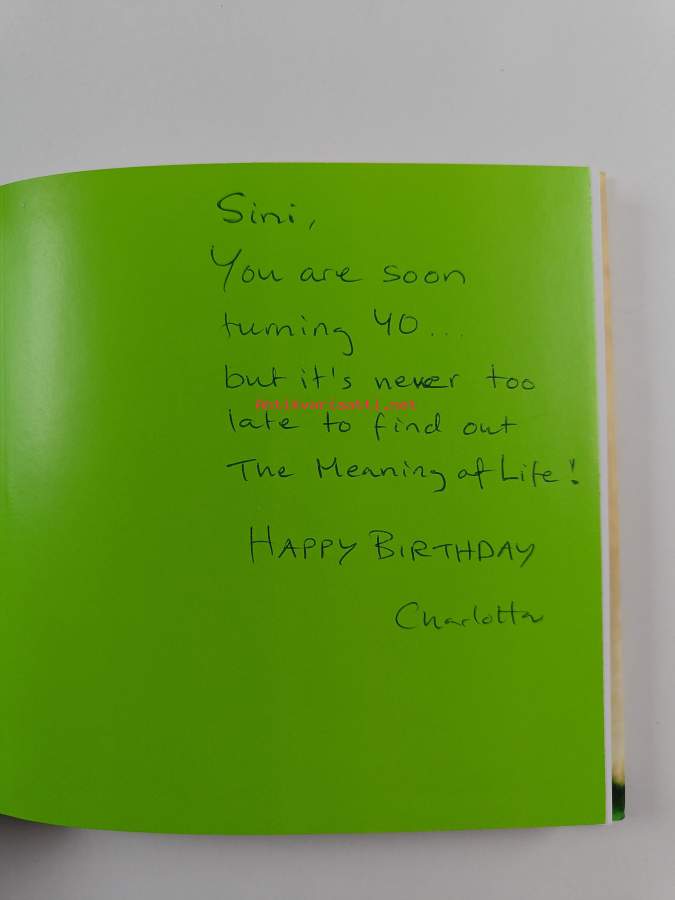 Sini,
You are soon
turning 40...
but it's never too
Antikvariaatti.net
late to find out
The Meaning of Life!
HAPPY BIRTHDAY
Charlotta